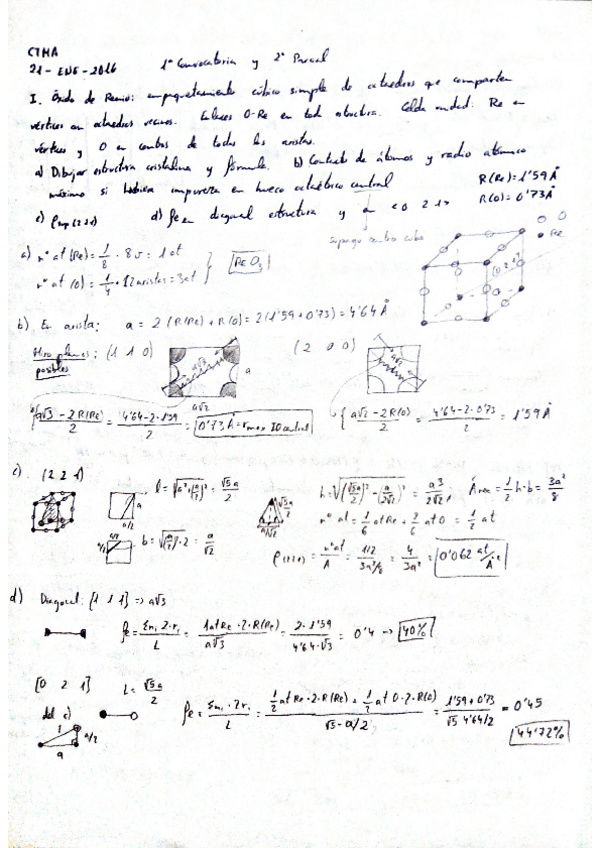 CTMA
21-ENE-2016 1ª Convocatoria y 2º Parcial
I. Óxido de Renio: empaquetamiento cúbico simple de octaedros que comparten
vértices con octaedros vecinos. Enlaces O-Re en toda estructura. Celda unidad: Re en
vértices y O en centros de todas las aristas.
a) Dibujar estructura cristalina y fórmula. b) Contacto de átomos y radio atómico
máximo si hubiera impureza en hueco octaédrico central R(Re)=1'59Å
c) ρsup (221) d) fe en diagonal estructura y en <0 2 1> R(O)=0'73Å
Supongo centro cubo
O
Re
a) nº at (Re) = 1/8 · 8v = 1 at
nº at (O) = 1/4 · 12 aristas = 3at } ReO3
b) En arista: a = 2(R(Re)+R(O)) = 2(1'59+0'73) = 4'64Å
Otros planos posibles: (1 1 0) a√3 a a√2 (2 0 0) a√2
(a√3 - 2R(Re))/2 = (4'64 - 2·1'59)/2 = 0'73Å = rmax IO central (a√2 - 2R(O))/2 = (4'64 - 2·0'73)/2 = 1'59Å
c) (2 2 1) a a/2 l = √(a²+(a/2)²) = √5a/2 h = √((√5a/2)² - (a/2√2)²) = a3/2√2 Área = 1/2 h·b = 3a²/8
b = √((a/2)²·2) = a/√2 nº at = 1/6 at Re + 2/6 at O = 1/2 at
ρ = nº at/A = (1/2)/(3a²/8) = 4/3a² = 0'062 at/Å²
d) Diagonal: [1 1 1] => a√3
fe = Σni·2·ri/L = 1at Re·2·R(Re)/a√3 = 2·1'59/4'64·√3 = 0'4 -> 40%
[0 2 1] L = √5a/2
del c) fe = Σni·2ri/L = (1/2 at Re·2·R(Re) + 1/2 at O·2·R(O))/(√5·a/2) = (1'59+0'73)/(√5 4'64/2) = 0'45
a/2
a
44'72%